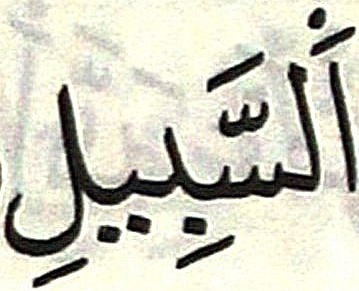 اَلسَّبِيلِ